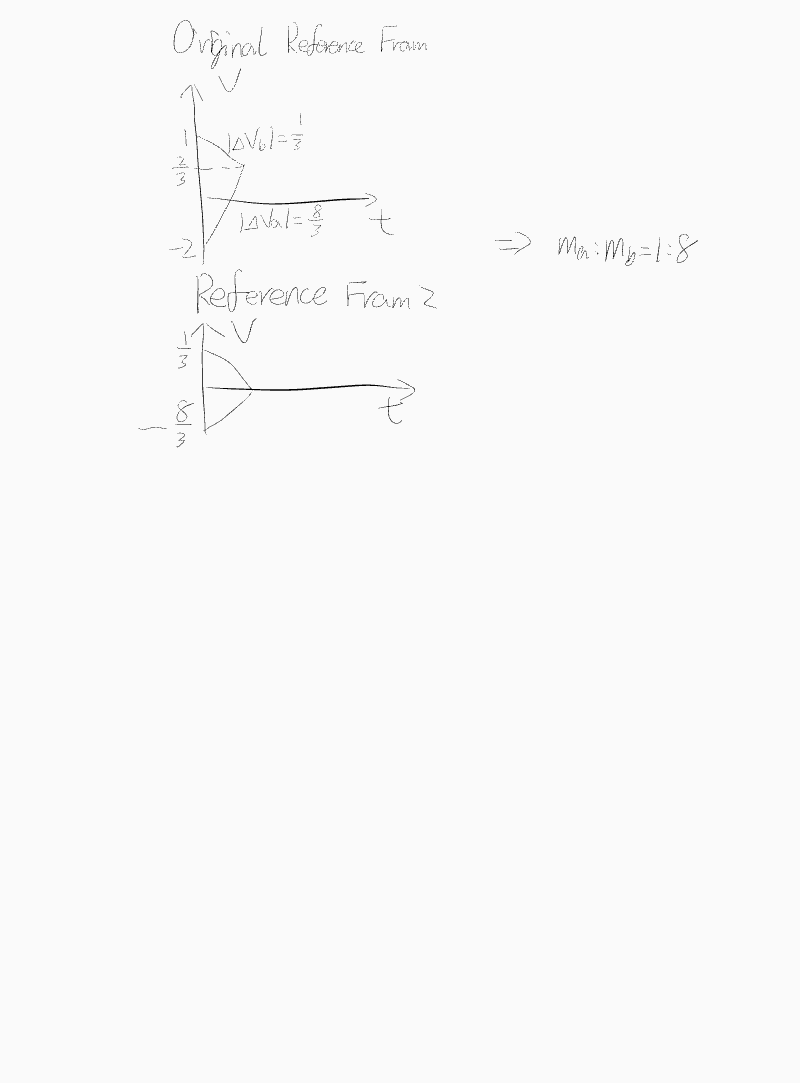 Original Reference Fram
V
1
|ΔVb|=1/3
2/3
|ΔVa|=8/3
t
-2
⇒ ma:mb=1:8
Reference Fram 2
V
1/3
t
-8/3